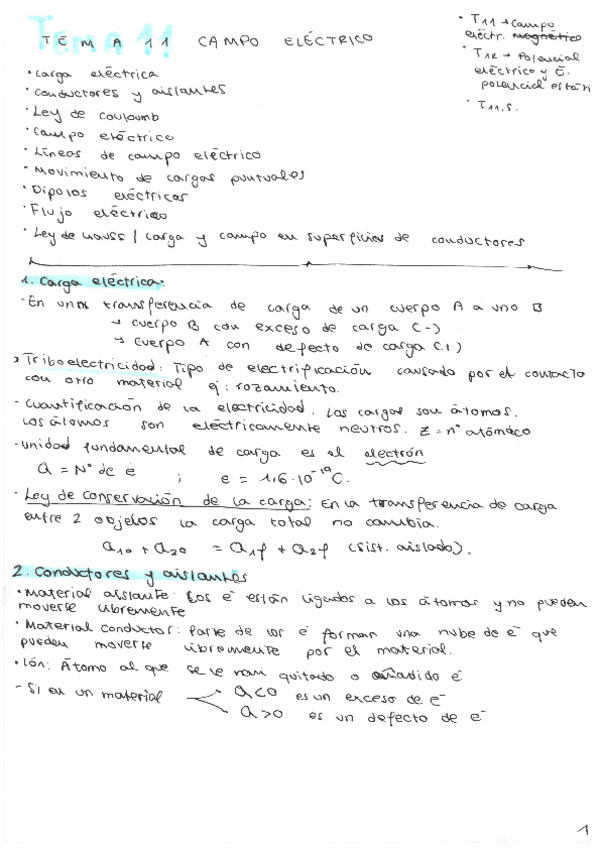 Tema 11
TEMA 11 CAMPO ELÉCTRICO
· T11 → Campo
eléctr. magnético
· T12 → Potencial
eléctrico y E.
potencial estáti
· T11.5.
· Carga eléctrica
· Conductores y aislantes
· Ley de Couloumb
· Campo eléctrico
· Líneas de campo eléctrico
· Movimiento de cargas puntuales
· Dipolos eléctricos
· Flujo eléctrico
· Ley de Gauss / carga y campo en superficies de conductores
1. Carga eléctrica:
· En una transferencia de carga de un cuerpo A a uno B
→ cuerpo B con exceso de carga (-)
→ cuerpo A con defecto de carga (+)
Triboelectricidad: Tipo de electrificación causado por el contacto
con otro material ej: rozamiento.
- Cuantificación de la electricidad. Las cargas son átomos.
Los átomos son eléctricamente neutros. Z = nº atómico
- Unidad fundamental de carga es el electrón
Q = Nº de e ; e = 1,6·10⁻¹⁹ C.
- Ley de conservación de la carga: En la transferencia de carga
entre 2 objetos la carga total no cambia.
Q₁₀ + Q₂₀ = Q₁f + Q₂f (sist. aislado).
2. Conductores y aislantes
· Material aislante: Los e⁻ están ligados a los átomos y no pueden
moverse libremente
· Material conductor: Parte de los e⁻ forman una nube de e⁻ que
pueden moverse libremente por el material.
· Ión: Átomo al que se le han quitado o añadido e⁻
- Si en un material
Q<0 es un exceso de e⁻
Q>0 es un defecto de e⁻
1